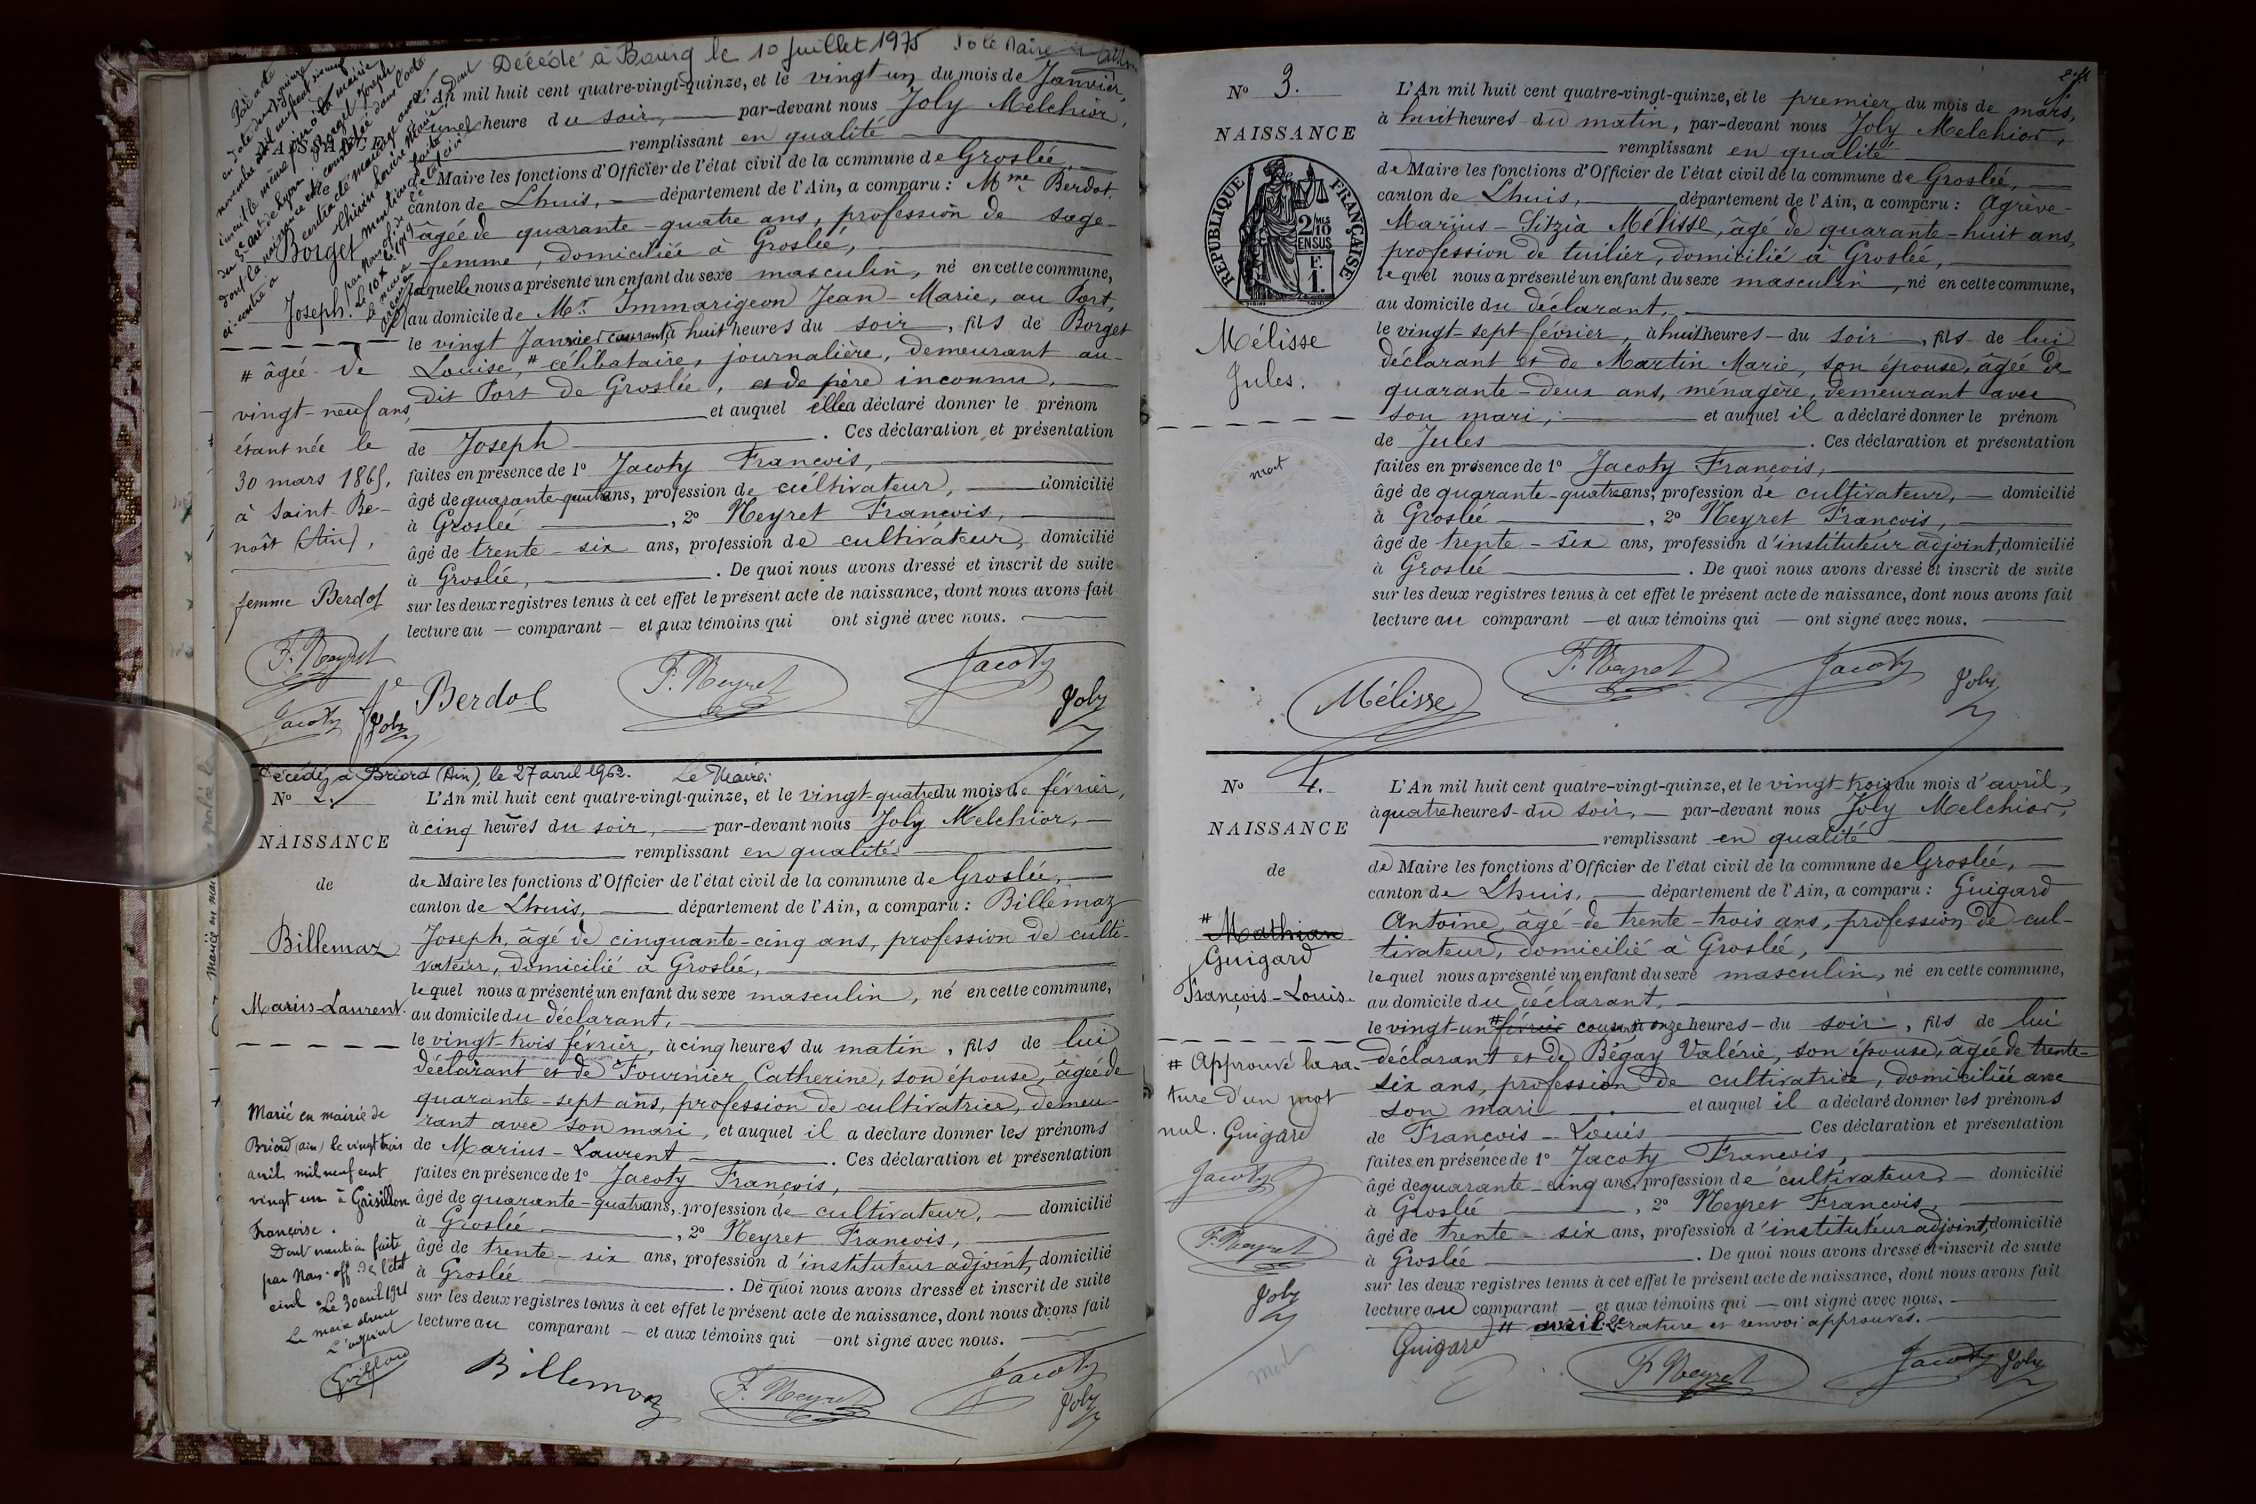 Décédé à Bourg le 10 juillet 1975
L'An mil huit cent quatre-vingt-quinze, et le vingt un du mois de Janvier,
une heure du soir, par-devant nous Joly Melchior,
remplissant en qualité
de Maire les fonctions d'Officier de l'état civil de la commune de Groslée,
canton de Lhuis, département de l'Ain, a comparu : Mme Berdot
âgée de quarante-quatre ans, profession de sage-
femme, domiciliée à Groslée,
laquelle nous a présenté un enfant du sexe masculin, né en cette commune,
au domicile de Mr Immarigeon Jean-Marie, au Port,
le vingt Janvier courant, à huit heures du soir, fils de Borget
Louise, # célibataire, journalière, demeurant au-
dit Port de Groslée, et de père inconnu,
et auquel elle a déclaré donner le prénom
de Joseph . Ces déclaration et présentation
faites en présence de 1o Jacoty François,
âgé de quarante-quatre ans, profession de cultivateur, domicilié
à Groslée , 2o Neyret François,
âgé de trente-six ans, profession de cultivateur, domicilié
à Groslée, . De quoi nous avons dressé et inscrit de suite
sur les deux registres tenus à cet effet le présent acte de naissance, dont nous avons fait
lecture au comparant et aux témoins qui ont signé avec nous.
Borget
Joseph.
# âgée de
vingt-neuf ans,
étant née le
30 mars 1865,
à Saint-Be-
noît (Ain),
femme Berdot
F. Neyret
Jacoty Joly
fe Berdot F. Neyret Jacoty Joly
Décédé à Briord (Ain), le 27 avril 1962. Le Maire:
No 2.
NAISSANCE
de
Billemaz
Marius-Laurent.
L'An mil huit cent quatre-vingt-quinze, et le vingt-quatre du mois de février,
à cinq heures du soir, par-devant nous Joly Melchior,
remplissant en qualité
de Maire les fonctions d'Officier de l'état civil de la commune de Groslée,
canton de Lhuis, département de l'Ain, a comparu : Billemaz
Joseph, âgé de cinquante-cinq ans, profession de culti-
vateur, domicilié à Groslée,
lequel nous a présenté un enfant du sexe masculin, né en cette commune,
au domicile du déclarant,
le vingt-trois février, à cinq heures du matin, fils de lui
déclarant et de Fournier Catherine, son épouse, âgée de
quarante-sept ans, profession de cultivatrice, demeu-
rant avec son mari, et auquel il a déclaré donner les prénoms
de Marius-Laurent . Ces déclaration et présentation
faites en présence de 1o Jacoty François,
âgé de quarante-quatre ans, profession de cultivateur, domicilié
à Groslée , 2o Neyret François,
âgé de trente-six ans, profession d'instituteur adjoint, domicilié
à Groslée . De quoi nous avons dressé et inscrit de suite
sur les deux registres tenus à cet effet le présent acte de naissance, dont nous avons fait
lecture au comparant et aux témoins qui ont signé avec nous.
Marié en mairie de
Briord (ain) le vingt trois
avril mil neuf cent
vingt un à Gaisillon
Françoise.
Dont mention faite
par Nous off. de l'état
civil Le 30 avril 1921
L'adjoint
Billemaz F. Neyret Jacoty Joly
No 3.
NAISSANCE
RÉPUBLIQUE FRANÇAISE
2/10 MES EN SUS
F. 1.
Mélisse
Jules.
mort
L'An mil huit cent quatre-vingt-quinze, et le premier du mois de mars,
à huit heures du matin, par-devant nous Joly Melchior,
remplissant en qualité
de Maire les fonctions d'Officier de l'état civil de la commune de Groslée,
canton de Lhuis, département de l'Ain, a comparu : Agrève-
Marius-Sitzia Mélisse, âgé de quarante-huit ans,
profession de tuilier, domicilié à Groslée,
lequel nous a présenté un enfant du sexe masculin, né en cette commune,
au domicile du déclarant,
le vingt-sept février, à huit heures du soir, fils de lui
déclarant et de Martin Marie, son épouse, âgée de
quarante-deux ans, ménagère, demeurant avec
son mari, et auquel il a déclaré donner le prénom
de Jules . Ces déclaration et présentation
faites en présence de 1o Jacoty François,
âgé de quarante-quatre ans, profession de cultivateur, domicilié
à Groslée , 2o Neyret François,
âgé de trente-six ans, profession d'instituteur adjoint, domicilié
à Groslée . De quoi nous avons dressé et inscrit de suite
sur les deux registres tenus à cet effet le présent acte de naissance, dont nous avons fait
lecture au comparant et aux témoins qui ont signé avec nous.
Mélisse F. Neyret Jacoty Joly
No 4.
NAISSANCE
de
# Mathian
Guigard
François-Louis.
L'An mil huit cent quatre-vingt-quinze, et le vingt-trois du mois d'avril,
à quatre heures du soir, par-devant nous Joly Melchior,
remplissant en qualité
de Maire les fonctions d'Officier de l'état civil de la commune de Groslée,
canton de Lhuis, département de l'Ain, a comparu : Guigard
Antoine, âgé de trente-trois ans, profession de cul-
tivateur, domicilié à Groslée,
lequel nous a présenté un enfant du sexe masculin, né en cette commune,
au domicile du déclarant,
le vingt-un # février courant à onze heures du soir, fils de lui
déclarant et de Bégay Valérie, son épouse, âgée de trente-
six ans, profession de cultivatrice, domiciliée avec
son mari et auquel il a déclaré donner les prénoms
de François-Louis Ces déclaration et présentation
faites en présence de 1o Jacoty François,
âgé de quarante-cinq ans, profession de cultivateur, domicilié
à Groslée , 2o Neyret François,
âgé de trente-six ans, profession d'instituteur adjoint, domicilié
à Groslée . De quoi nous avons dressé et inscrit de suite
sur les deux registres tenus à cet effet le présent acte de naissance, dont nous avons fait
lecture au comparant et aux témoins qui ont signé avec nous.
# avril. rature et renvoi approuvés.
# Approuvé la ra-
ture d'un mot
nul. Guigard
Jacoty
F. Neyret
Joly
mort
Guigard F. Neyret Jacoty Joly